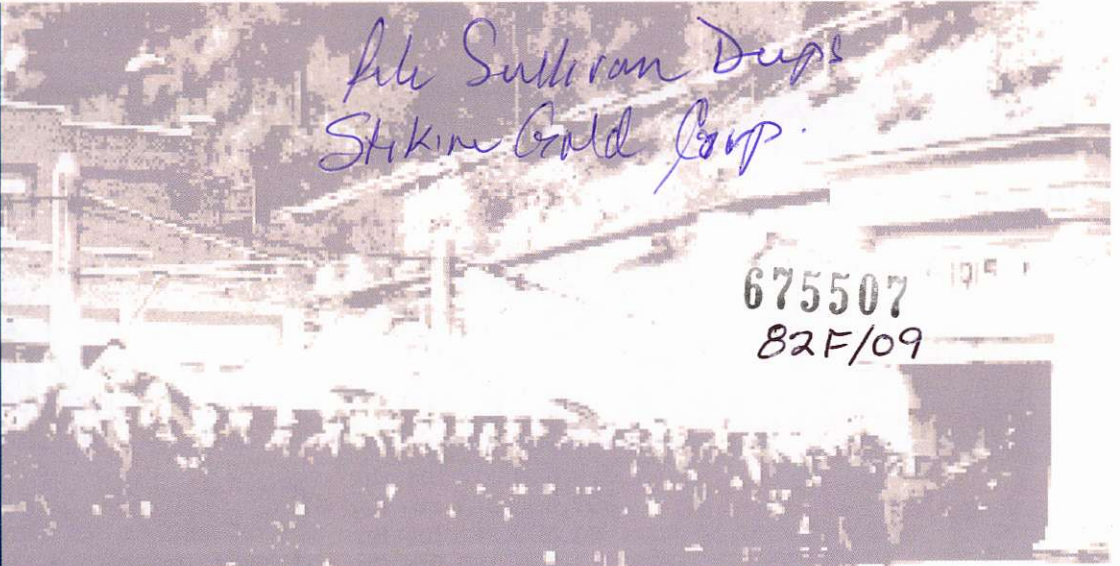 File Sullivan Deeps
Stikine Gold Corp.
675507
82F/09